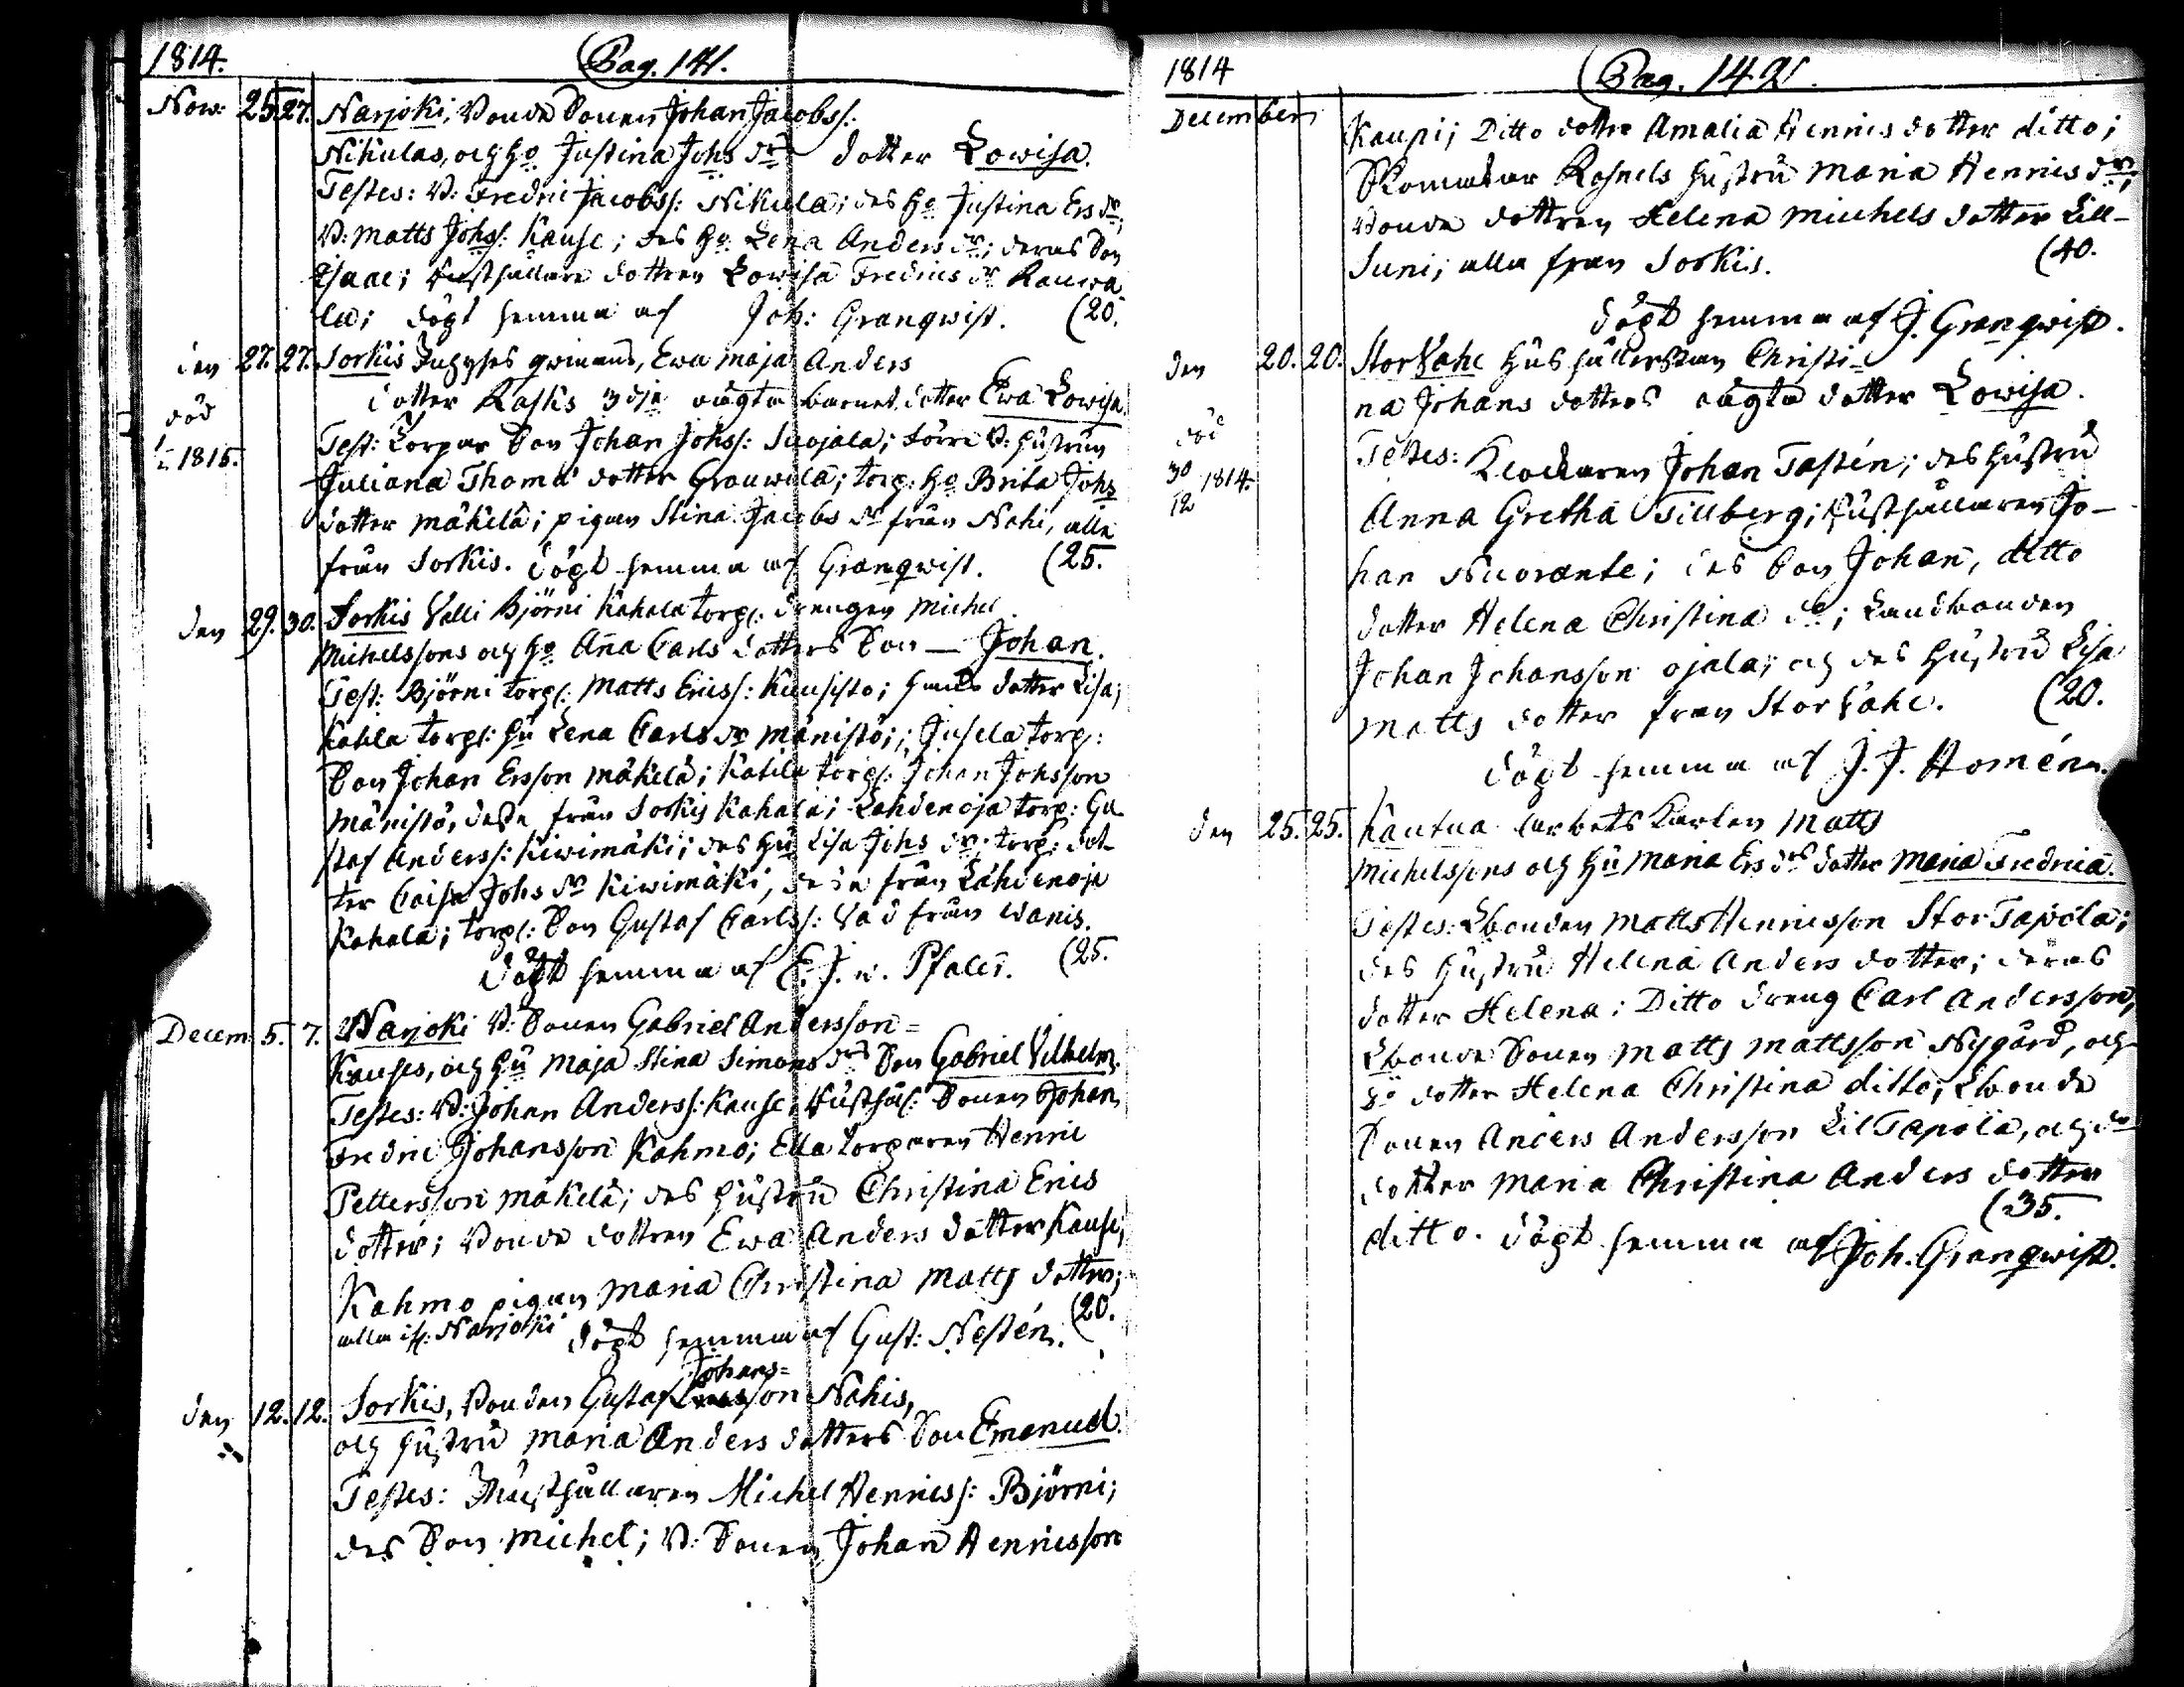 1814. Pag. 141.
Nov: 25. 27. Narjoki, Bonde Sonen Johan Jacobss:
Nikulas, och ho Justina Johs dr dotter Lowisa.
Testes: B: Fredric Jacobss: Nikula; des ho Justina Ers dr;
B: Matts Johss: Kause; des ho Lena Anders dr; deras Son
Isaac; Rusthållare dottren Lowisa Fredrics dr Rauwa
la; döpt hemma af Joh: Granqwist. (20.
den 27. 27. Sorkis Inhyses qwinnans, Ewa Maja Anders
dotter Rasks 3dje oägta barnet dotter Ewa Lowisa.
död
1815.
Test: Torpar Son Johan Johss: Suojala; förre B: hustrun
Juliana Thomæ dotter Grouwila; torp: ho Brita Johs
dotter Mäkilä; pigan Stina Jacobs dr från Nohi, alla
från Sorkis. döpt hemma af Granqwist. (25.
den 29. 30. Sorkis Velli Björni Kahala torp: drengen Michel
Michelssons och ho Anna Carls dotters Son — Johan.
Test: Björni torp: Matts Ericss: Kuusisto; hans dotter Lisa;
Kahla torp: hu Lena Carls dr Mänistö; Jusela torp:
Son Johan Ersson Mäkelä; Kahila torp: Johan Johsson
Mänistö, desse från Sorkis Kahala; Lahdenoja torp: Gu
staf Anderss: Kiwimäki; des hu Lisa Johs dr; torp: dot
ter Caisa Johs dr Kiwimäki, desse från Lahdenoja
Kahala; torp: Son Gustaf Carlss: Vad från Wanis.
döpt hemma af E. J. v. Pfaler. (25.
Decem 5. 7. Narjoki B: Sonen Gabriel Andersson=
Kauses, och hu Maja Stina Simons drs Son Gabriel Vilhelm.
Testes: B: Johan Anderss: Kause, Rusthål: Sonen Johan
Fredric Johansson Kahmo; Ella torparen Henric
Pettersson Mäkelä; des hustru Christina Erics
dotter; Bonde dottren Ewa Anders dotter Kause;
Kahmo pigan Maria Christina Matts dotter;
alla if: Narjoki döpt hemma af Gust: Nestén. (20.
Johans=
den 12. 12. Sorkis, Bonden Gustaf son Nohis,
och hustru Maria Anders dotters Son Emanuel.
Testes: Rusthållaren Michel Henricss: Björni;
des Son Michel; B: Sonen Johan Henricsson
1814 Pag. 142.
December
Kaupi; Ditto dotter Amalia Henrics dotter ditto;
Skomakar Rosnels hustru Maria Henrics dr;
Bonde dottren Helena Michels dotter Lill-
Suni; alla från Sorkis. (40.
döpt hemma af J. Granqwist.
den 20. 20. Stor Vahe hushållerskan Christi-
na Johans dotters oägta dotter Lowisa.
död
30 1814.
12
Testes: Klockaren Johan Tastén; des hustru
Anna Gretha Tillberg; Rusthållaren Jo-
han Nuorante; des Son Johan, ditto
dotter Helena Christina do; Landbonden
Johan Johansson ojala; och des hustru Lisa
Matts dotter från Stor Vahe. (20.
döpt hemma af J. J. Homén.
den 25. 25. Kautua arbets Karlen Matts
Michelssons och hu Maria Ers drs dotter Maria Fredrica.
Testes: Lbonden Matts Henricsson Stor Tapola;
des hustru Helena Anders dotter; deras
dotter Helena; Ditto dreng Carl Andersson,
Lbonde Sonen Matts Mattsson Nygård, och
do dotter Helena Christina ditto; Lbonde
Sonen Anders Andersson Lill Tapola, och do
dotter Maria Christina Anders dotter
ditto. döpt hemma af Joh. Granqwist. (35.